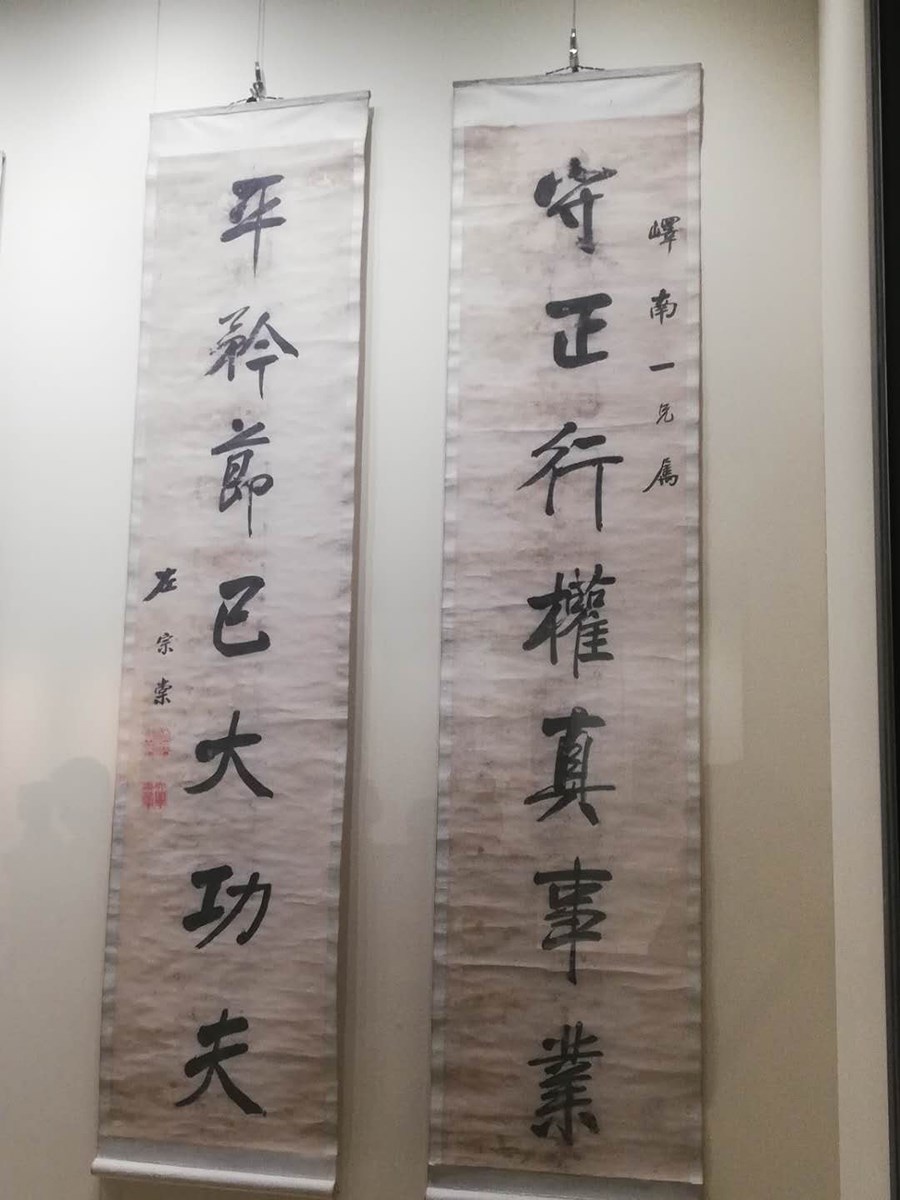 嶧南一兄屬
守正行權真事業
平矜節己大功夫
左宗棠